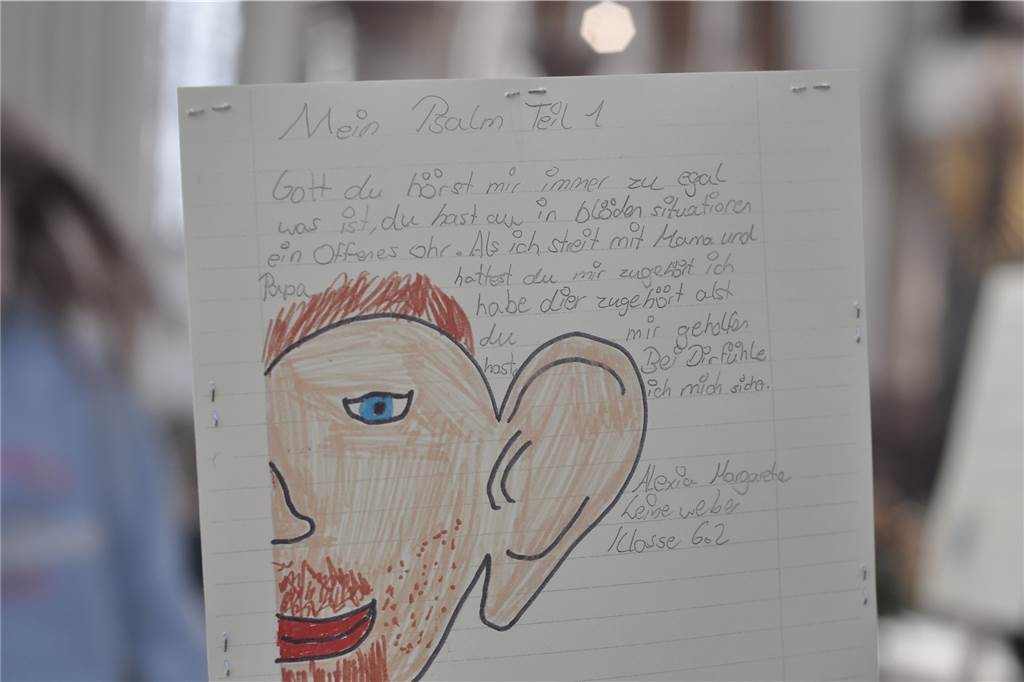 Mein Psalm Teil 1
Gott du hörst mir immer zu egal
was ist, du hast auv in blöden situationen
ein Offenes Ohr. Als ich streit mit Mama und
Papa hattest du mir zugehört ich
habe dier zugehört alst
du mir geholfen
hast. Bei Dir fühle
ich mich sicha.
Alexia Margarethe
Leineweber
Klasse 6.2